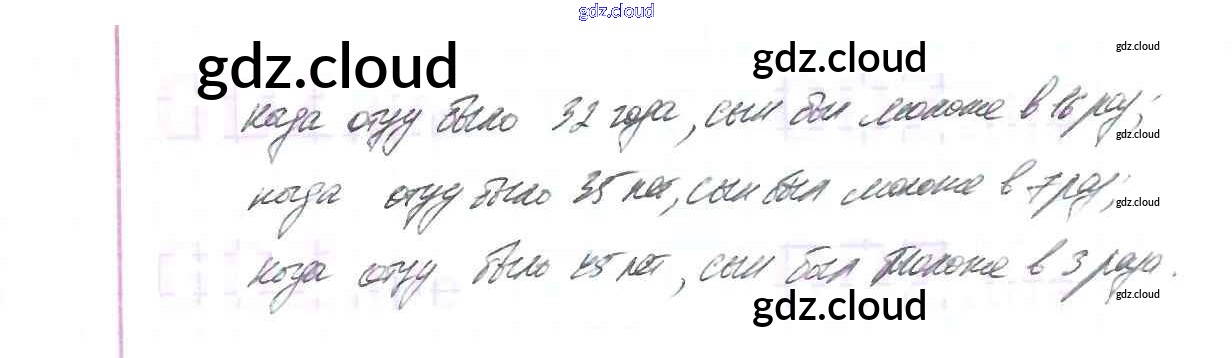 gdz.cloud
gdz.cloud gdz.cloud gdz.cloud
когда отцу было 32 года, сын был моложе в 16 раз;
gdz.cloud
когда отцу было 35 лет, сын был моложе в 7 раз;
gdz.cloud
когда отцу было 45 лет, сын был моложе в 3 раза.
gdz.cloud gdz.cloud